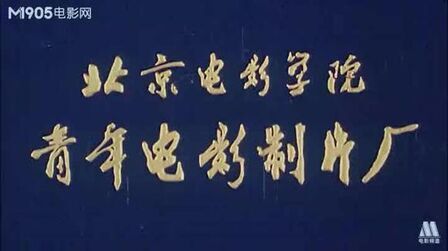 M1905电影网
北京电影学院
青年电影制片厂
电影频道